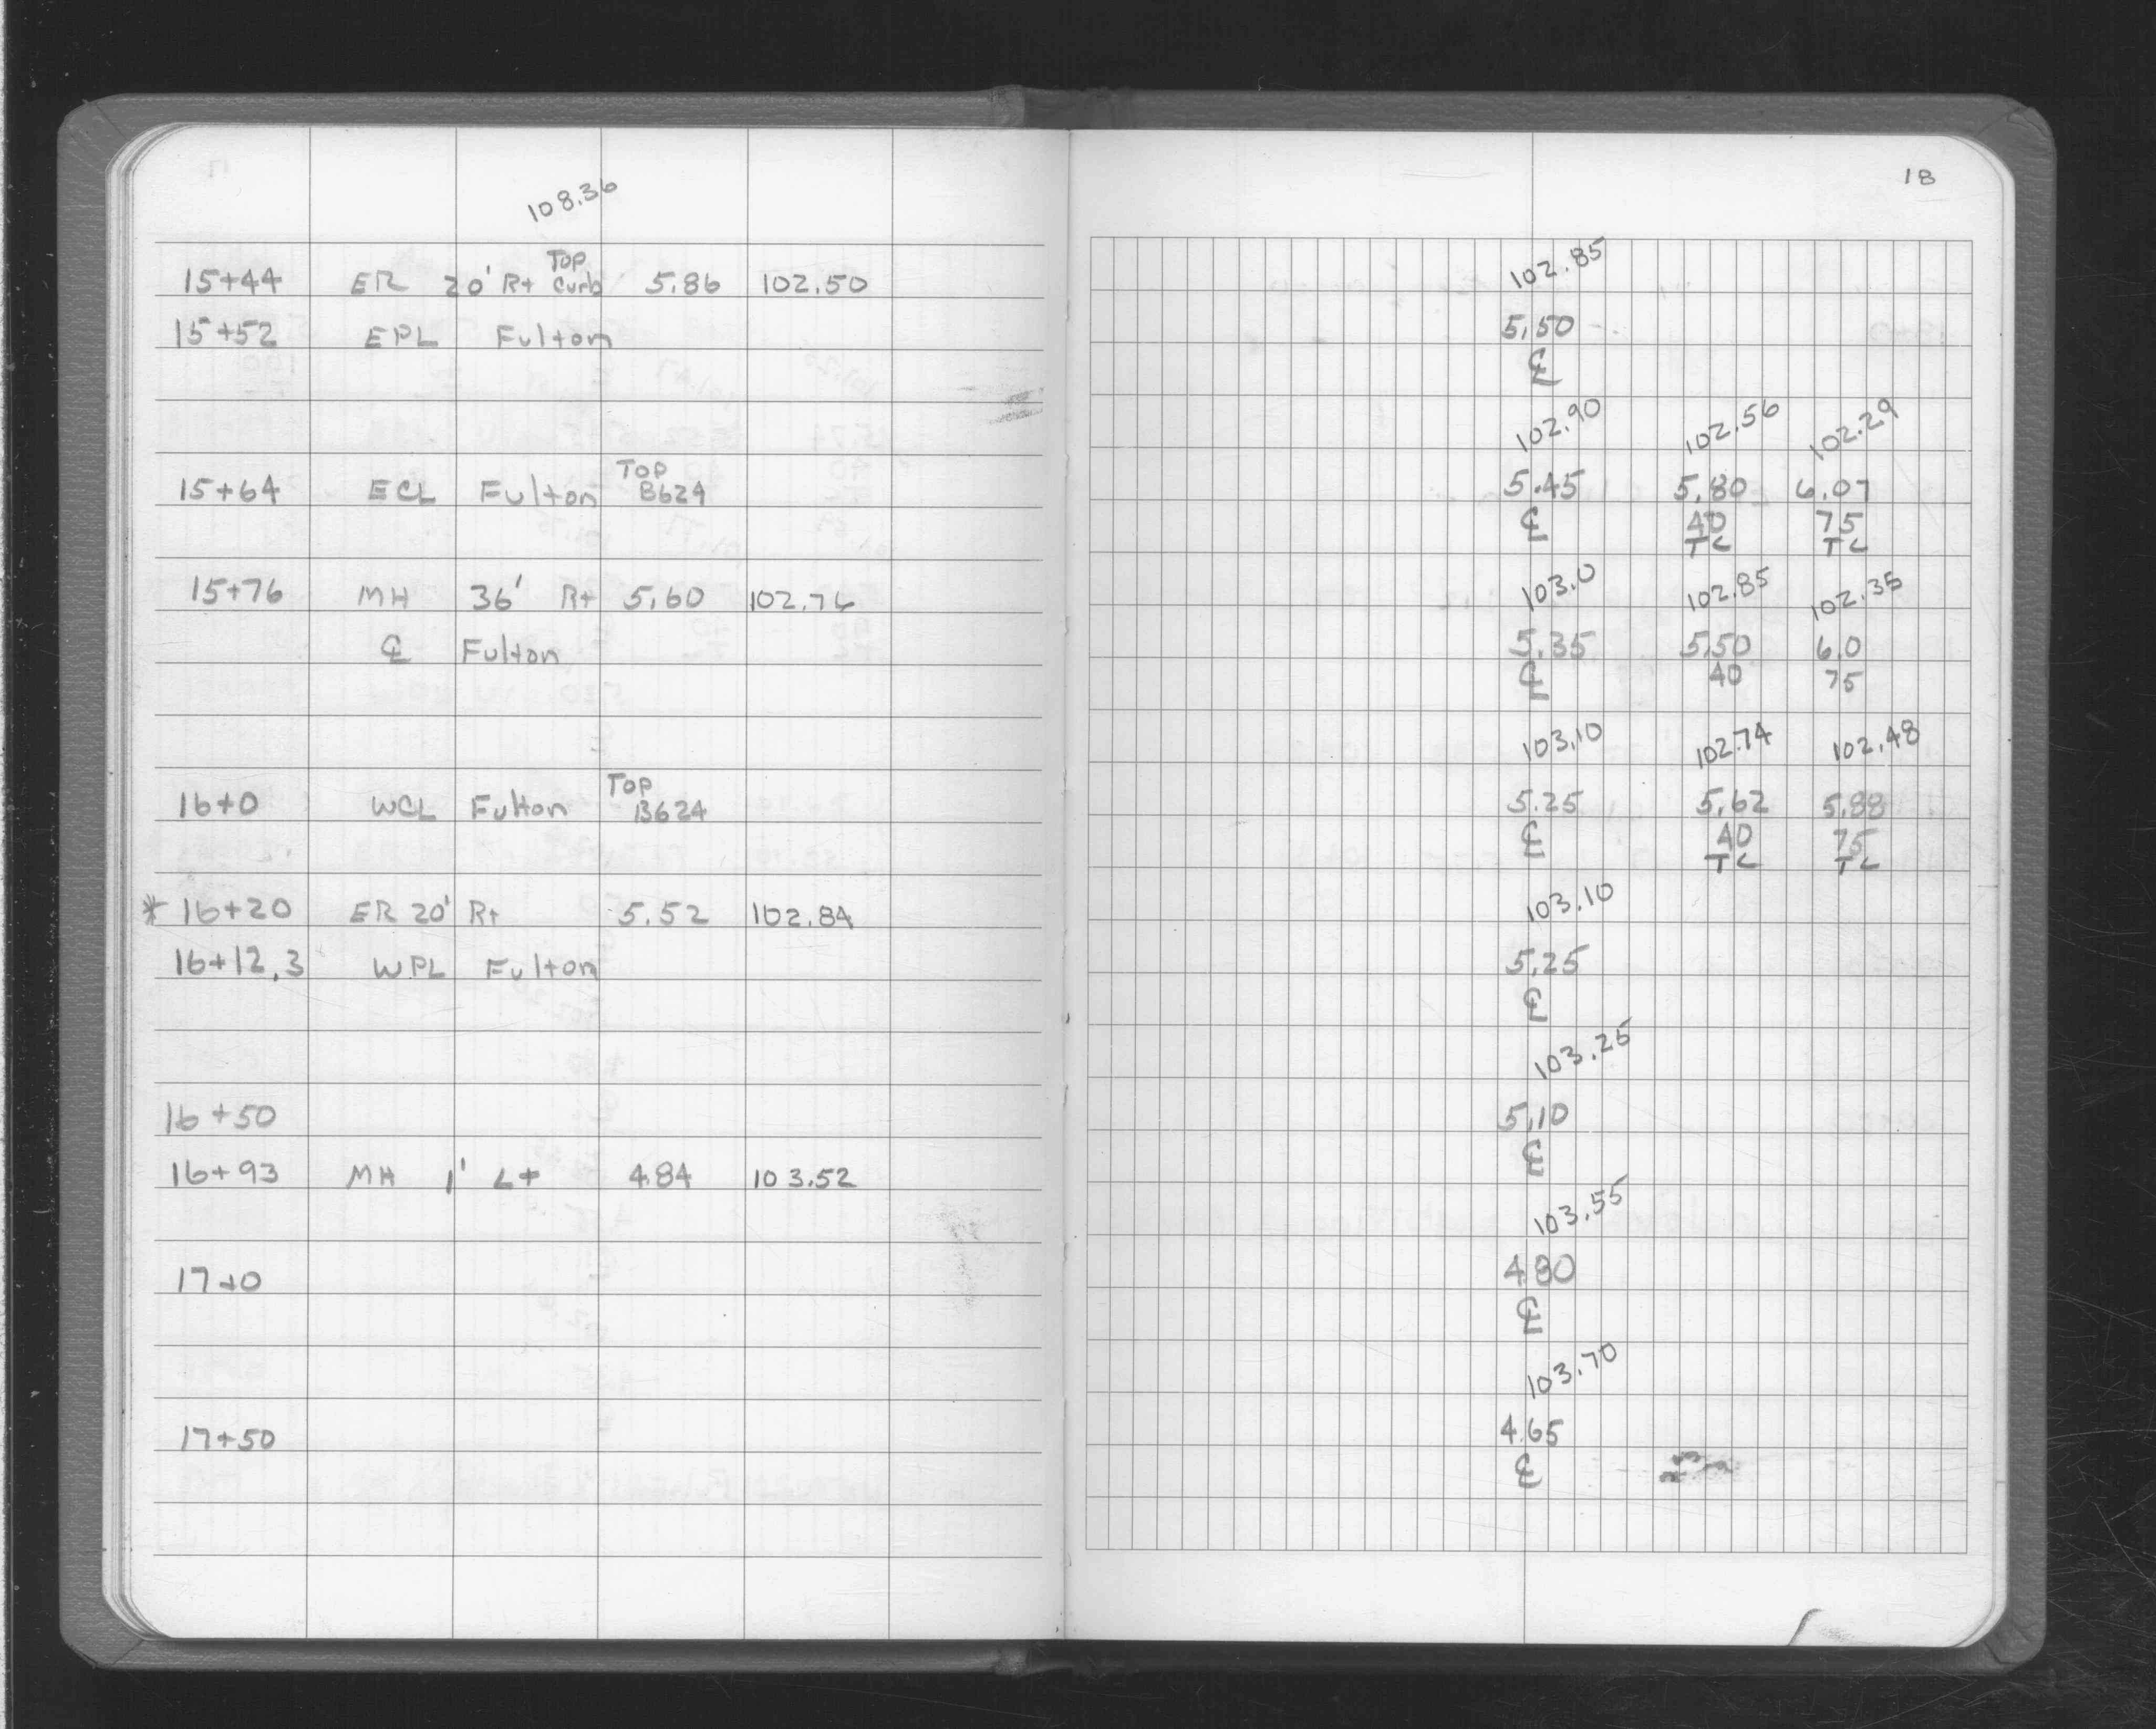 108.36
15+44 ER 20' Rt Top Curb 5.86 102.50
15+52 EPL Fulton
15+64 ECL Fulton Top B624
15+76 MH 36' Rt 5.60 102.76
℄ Fulton
16+0 WCL Fulton Top B624
* 16+20 ER 20' Rt 5.52 102.84
16+12.3 WPL Fulton
16+50
16+93 MH 1' Lt 4.84 103.52
17+0
17+50
18
102.85
5.50
℄
102.90 102.56 102.29
5.45 5.80 6.07
℄ 40 75
TC TC
103.0 102.85 102.35
5.35 5.50 6.0
℄ 40 75
103.10 102.74 102.48
5.25 5.62 5.88
℄ 40 75
TC TC
103.10
5.25
℄
103.25
5.10
℄
103.55
4.80
℄
103.70
4.65
℄